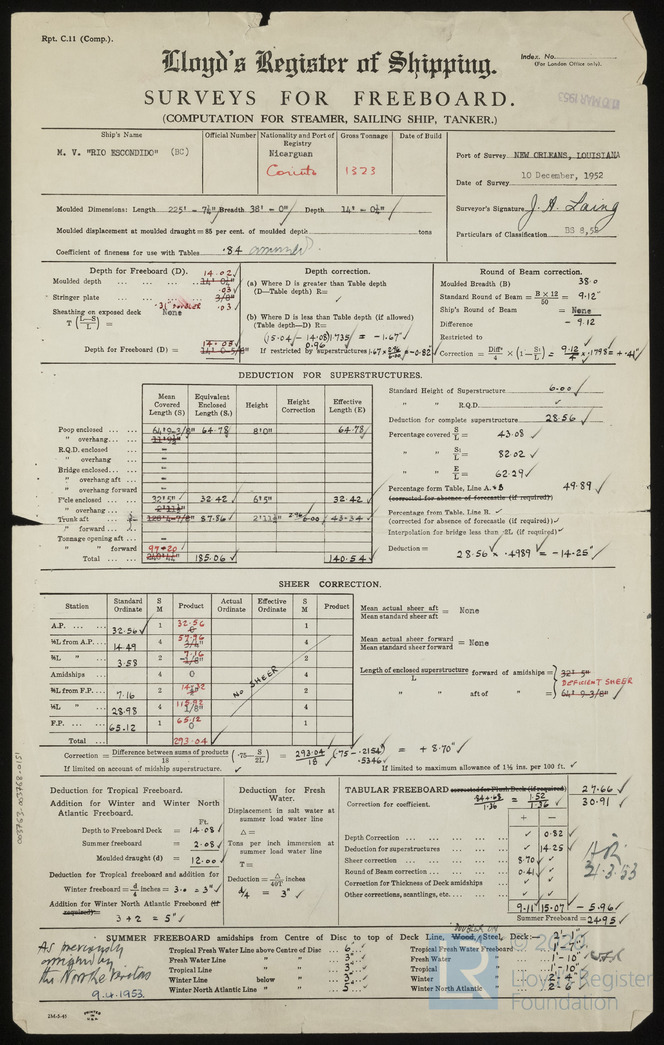 Rpt. C.11 (Comp.).
Index. No.
(For London Office only).
Lloyd's Register of Shipping.
MAR 1953
SURVEYS FOR FREEBOARD.
(COMPUTATION FOR STEAMER, SAILING SHIP, TANKER.)
Ship's Name Official Number Nationality and Port of Registry Gross Tonnage Date of Build
M. V. "RIO ESCONDIDO" (BC) Nicarguan
Corinto 1323
Port of Survey NEW ORLEANS, LOUISIANA
Date of Survey 10 December, 1952
Surveyor's Signature J. A. Laing
Particulars of Classification BS 8,52
Moulded Dimensions: Length 225' - 7¼" Breadth 38' - 0" Depth 14' - 0¼"
Moulded displacement at moulded draught = 85 per cent. of moulded depth tons
Coefficient of fineness for use with Tables .84 assumed
Depth for Freeboard (D).
14.02
Moulded depth 14' 0¼"
.03
Stringer plate 3/8"
.31" doubler .03
Sheathing on exposed deck None
T (L-S/L) =
14.08
Depth for Freeboard (D) = 14' 0-5/8"
Depth correction.
(a) Where D is greater than Table depth
(D—Table depth) R=
(b) Where D is less than Table depth (if allowed)
(Table depth—D) R=
(15.04 - 14.08) 1.735 = -1.67"
0.96
If restricted by superstructures 1.67 x 2.96/6.00 = -0.82"
Round of Beam correction.
Moulded Breadth (B) 38.0
Standard Round of Beam = B x 12/50 = 9.12"
Ship's Round of Beam = None
Difference - 9.12
Restricted to
Correction = Diffe/4 x (1 - S1/L) = 9.12/4 x .1798 = +.41"
DEDUCTION FOR SUPERSTRUCTURES.
Mean Covered Length (S) Equivalent Enclosed Length (S1) Height Height Correction Effective Length (E)
Poop enclosed 64' 9-3/8" 64.78 8'0" 64.78
" overhang
R.Q.D. enclosed -
" overhang -
Bridge enclosed -
" overhang aft -
" overhang forward -
F'cle enclosed 32' 5" 32.42 6'5" 32.42
" overhang
Trunk aft 87.86 2'11½" 2.96/6.00 43.34
" forward
Tonnage opening aft -
" " forward 97.20
Total 185.06 140.54
Standard Height of Superstructure 6.00
" " R.Q.D.
Deduction for complete superstructure 28.56
Percentage covered S/L = 43.08
" S1/L = 82.02
" E/L = 62.29
Percentage form Table, Line A. B 49.89
(corrected for absence of forecastle (if required))
Percentage from Table, Line B.
(corrected for absence of forecastle (if required))
Interpolation for bridge less than .2L (if required)
Deduction = 28.56 x .4989 = -14.25"
SHEER CORRECTION.
Station Standard Ordinate S M Product Actual Ordinate Effective Ordinate S M Product
A.P. 32.56 1 32.56 1
⅙L from A.P. 14.49 4 57.96 4
⅓L " 3.58 2 7.16 2
Amidships 4 0 4
⅓L from F.P. 7.16 2 14.32 2
⅙L " 28.98 4 115.92 4
F.P. 65.12 1 65.12 1
Total 293.04
NO SHEER
Mean actual sheer aft / Mean standard sheer aft = None
Mean actual sheer forward / Mean standard sheer forward = None
Length of enclosed superstructure / L forward of amidships = 32' 5"
DEFICIENT SHEER
" " aft of " = 64' 9-3/8"
Correction = Difference between sums of products / 18 (.75 - S/2L) = 293.04/18 (.75 - .2154) = + 8.70"
.5346
If limited on account of midship superstructure.
If limited to maximum allowance of 1½ ins. per 100 ft.
Deduction for Tropical Freeboard.
Addition for Winter and Winter North Atlantic Freeboard.
Ft.
Depth to Freeboard Deck = 14.08
Summer freeboard = 2.08
Moulded draught (d) = 12.00
Deduction for Tropical freeboard and addition for Winter freeboard = d/4 inches = 3.0 = 3"
Addition for Winter North Atlantic Freeboard (if required) =
3 + 2 = 5"
Deduction for Fresh Water.
Displacement in salt water at summer load water line
Δ =
Tons per inch immersion at summer load water line
T =
Deduction = Δ/40T inches
d/4 = 3"
TABULAR FREEBOARD corrected for Flush Deck (if required) 27.66
Correction for coefficient. .84 + .68 / 1.36 = 1.52/1.36 30.91
+ -
Depth Correction 0.82
Deduction for superstructures 14.25
Sheer correction 8.70
Round of Beam correction 0.41
Correction for Thickness of Deck amidships
Other corrections, scantlings, etc.
9.11 15.07 - 5.96
Summer Freeboard = 24.95
21.3.53
SUMMER FREEBOARD amidships from Centre of Disc to top of Deck Line, Wood, Steel, Deck:— 2' - 1"
DOUBLER ON
Tropical Fresh Water Line above Centre of Disc 6" Tropical Fresh Water Freeboard 1' - 7"
Fresh Water Line " " 3" Fresh Water " 1' - 10"
Tropical Line " " 3" Tropical " 1' - 10"
Winter Line below " 3" Winter " 2' - 4"
Winter North Atlantic Line " " 5" Winter North Atlantic " 2' - 6"
As previously
assigned by
the Norske Veritas
9.4.1953.
2M-5-45
PRINTED IN U.S.A.
003763-003768-0151
© 20
Lloyd's Register
Foundation